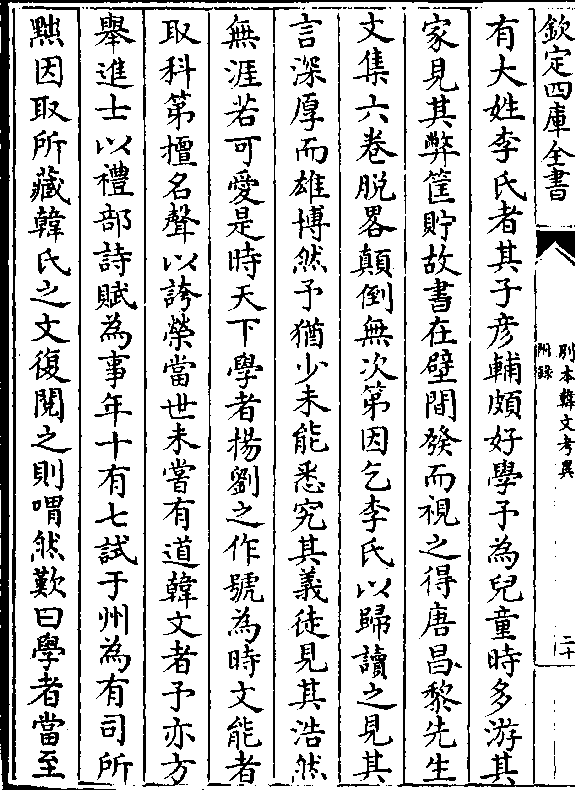 欽定四庫全書
別本韓文考異
附錄
二十
有大姓李氏者其子彦輔頗好學予為兒童時多游其
家見其弊筐貯故書在壁間發而視之得唐昌黎先生
文集六卷脱畧顛倒無次第因乞李氏以歸讀之見其
言深厚而雄博然予猶少未能悉究其義徒見其浩然
無涯若可愛是時天下學者楊劉之作號為時文能者
取科第擅名聲以誇榮當世未嘗有道韓文者予亦方
舉進士以禮部詩賦為事年十有七試于州為有司所
黜因取所藏韓氏之文復閱之則喟然歎曰學者當至